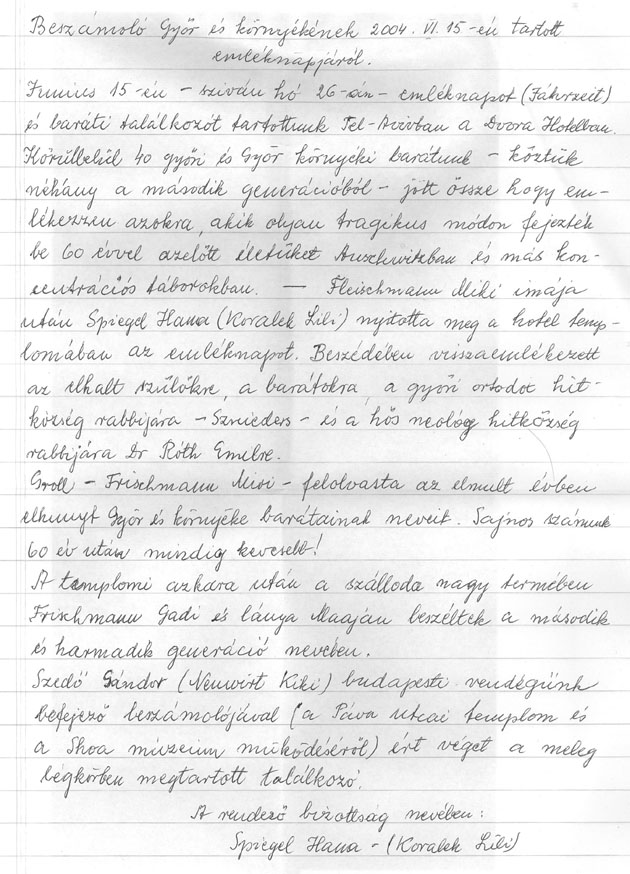 Beszámoló Győr és környékének 2004. VI. 15-én tartott
emléknapjáról.
Junius 15-én - sziván hó 26-án - emléknapot (Jáhrzeit)
és baráti találkozót tartottunk Tel-Avivban a Dvora Hotelban.
Körülbelül 40 győri és Győr környéki barátunk - köztük
néhány a második generációból - jött össze hogy em-
lékezzen azokra, akik olyan tragikus módon fejezték
be 60 évvel azelőtt életüket Auschwitzban és más kon-
centrációs táborokban. — Fleischmann Miki imája
után Spiegel Hana (Koralek Lili) nyitotta meg a hotel temp-
lomában az emléknapot. Beszédében visszaemlékezett
az elhalt szülőkre, a barátokra, a győri ortodox hit-
község rabbijára - Sznieders - és a hős neolog hitközség
rabbijára Dr Róth Emilre.
Groll - Frischmann Mivi - felolvasta az elmult évben
elhunyt Győr és környéke barátainak neveit. Sajnos számunk
60 év után mindig kevesebb!
A templomi azkara után a szálloda nagy termében
Frischmann Gadi és lánya Maaján beszéltek a második
és harmadik generáció nevében.
Szedő Sándor (Neuwirt Kiki) budapesti vendégünk
befejező beszámolójával (a Páva utcai templom és
a Shoa múzeum működéséről) ért véget a meleg
légkörben megtartott találkozó.
A rendező bizottság nevében:
Spiegel Hana - (Koralek Lili)